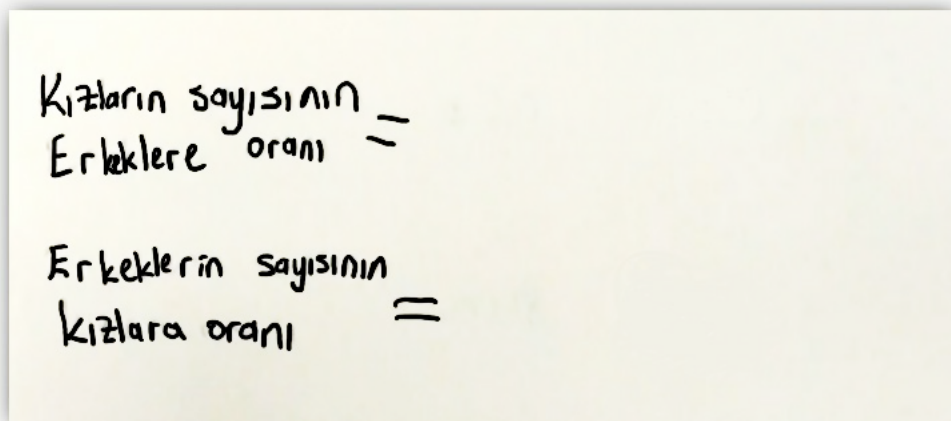 Kızların sayısının
Erkeklere oranı =
Erkeklerin sayısının
kızlara oranı =